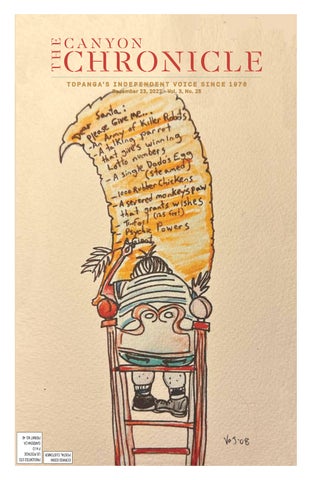 THE CANYON
CHRONICLE
TOPANGA'S INDEPENDENT VOICE SINCE 1976
December 23, 2022 • Vol. 3, No. 25
Dear Santa:
Please Give me...
-An Army of Killer Robots
-A talking parrot
that gives winning
Lotto numbers
- A single Dodo's Egg
(steamed)
- 1000 Rubber Chickens
- A severed monkey's paw
that grants wishes
(as Girl)
- Psychic Powers
VOJ '08